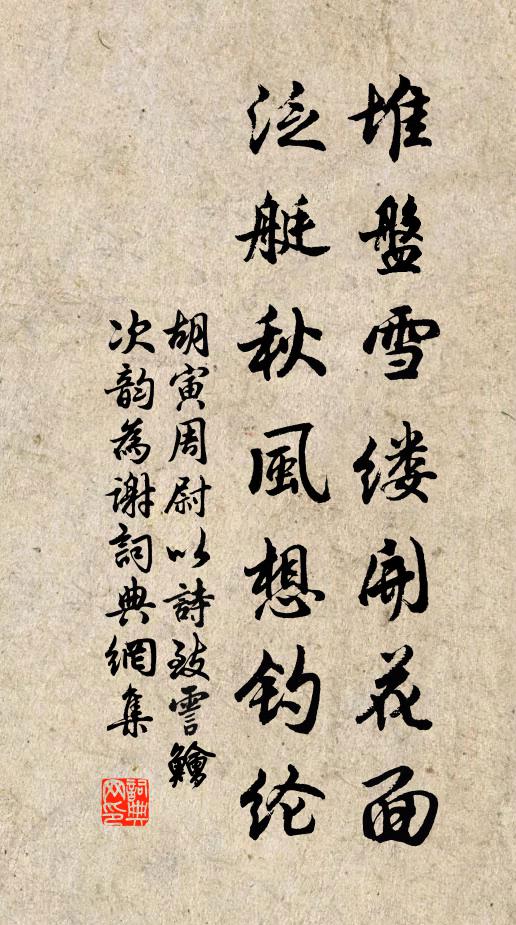 堆盤雪缕開花面
泛艇秋風想钓纶
胡寅周尉以詩致雪鱠
次韵為谢詞典網集
詞典
网印